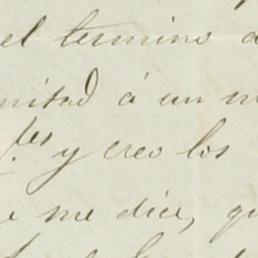 el termino d
mitad á un m
tes y creo los
e me dice, qu